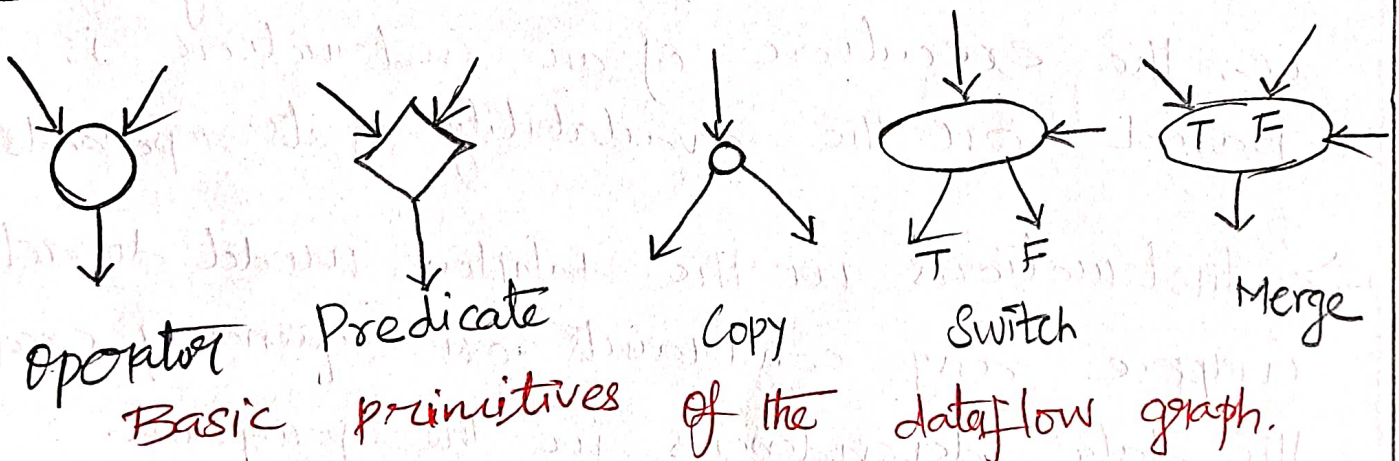 T F
T F
Operator Predicate Copy Switch Merge
Basic primitives of the dataflow graph.